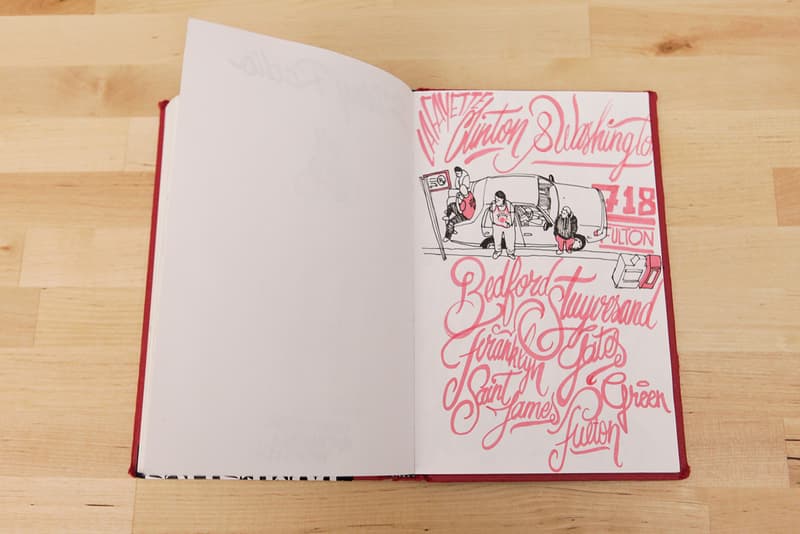 LAFAYETTE
Clinton & Washingto
718
FULTON
Bedford
Stuyvesand
Franklyn
Gates
Saint
James
Green
Fulton